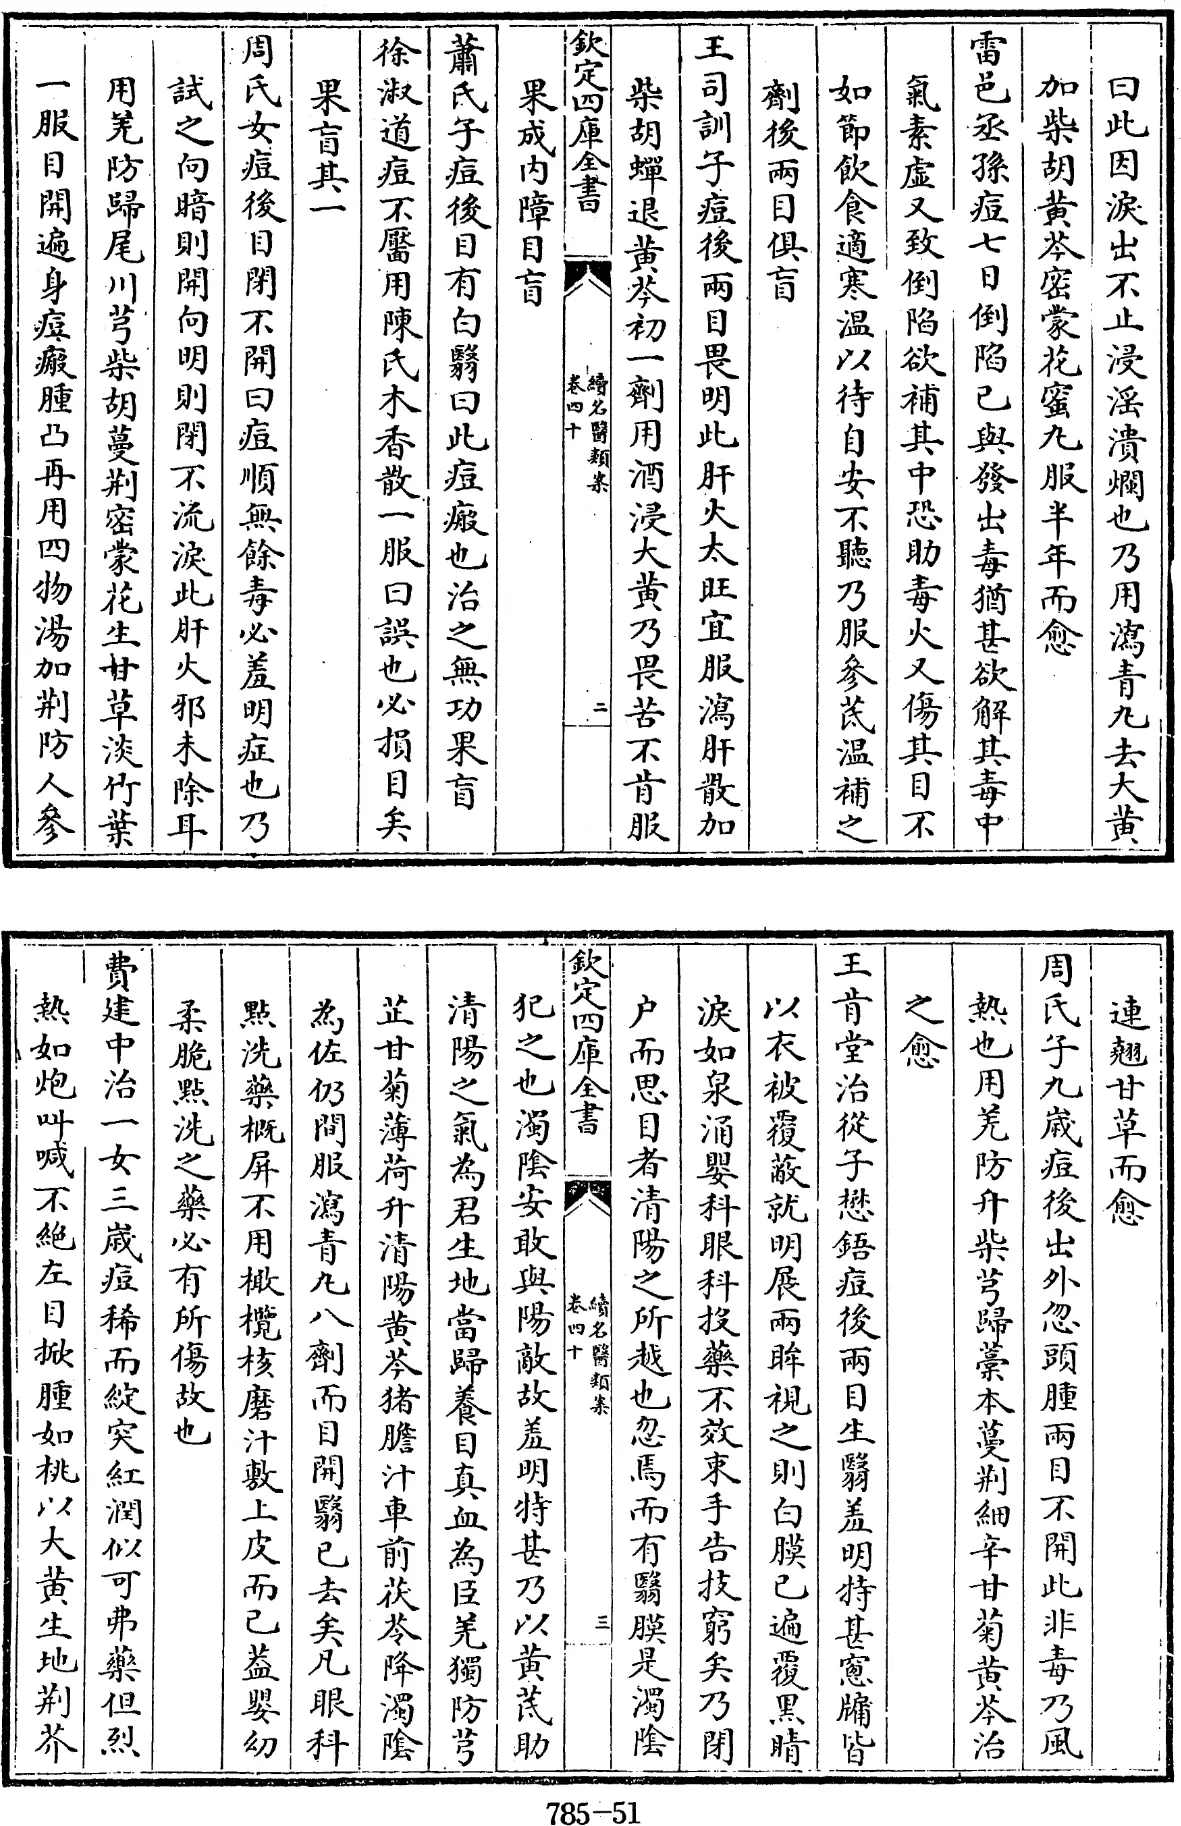 曰此因淚出不止浸淫潰爛也乃用瀉青丸去大黄
加柴胡黄芩密蒙花蜜丸服半年而愈
雷邑丞孫痘七日倒陷已與發出毒猶甚欲解其毒中
氣素虚又致倒陷欲補其中恐助毒火又傷其目不
如節飲食適寒温以待自安不聽乃服參芪温補之
劑後兩目俱盲
王司訓子痘後兩目畏明此肝火太旺宜服瀉肝散加
柴胡蟬退黄芩初一劑用酒浸大黄乃畏苦不肯服
欽定四庫全書
續名醫類案
卷四十
二
果成内障目盲
蕭氏子痘後目有白翳曰此痘瘢也治之無功果盲
徐淑道痘不靨用陳氏木香散一服曰誤也必損目矣
果盲其一
周氏女痘後目閉不開曰痘順無餘毒必羞明症也乃
試之向暗則開向明則閉不流淚此肝火邪未除耳
用羌防歸尾川芎柴胡蔓荆密蒙花生甘草淡竹葉
一服目開遍身痘瘢腫凸再用四物湯加荆防人參
連翹甘草而愈
周氏子九歳痘後出外忽頭腫兩目不開此非毒乃風
熱也用羌防升柴芎歸藁本蔓荆細辛甘菊黄芩治
之愈
王肯堂治從子懋錕痘後兩目生翳羞明特甚窻牖皆
以衣被覆蔽就明展兩眸視之則白膜已遍覆黒睛
淚如泉涌嬰科眼科投藥不效束手告技窮矣乃閉
户而思目者清陽之所越也忽焉而有翳膜是濁陰
欽定四庫全書
續名醫類案
卷四十
三
犯之也濁陰安敢與陽敵故羞明特甚乃以黄芪助
清陽之氣為君生地當歸養目真血為臣羌獨防芎
芷甘菊薄荷升清陽黄芩猪膽汁車前茯苓降濁陰
為佐仍間服瀉青丸八劑而目開翳已去矣凡眼科
點洗藥概屏不用橄欖核磨汁敷上皮而已葢嬰幼
柔脆點洗之藥必有所傷故也
費建中治一女三歳痘稀而綻突紅潤似可弗藥但烈
熱如炮叫喊不絶左目掀腫如桃以大黄生地荆芥
785-51